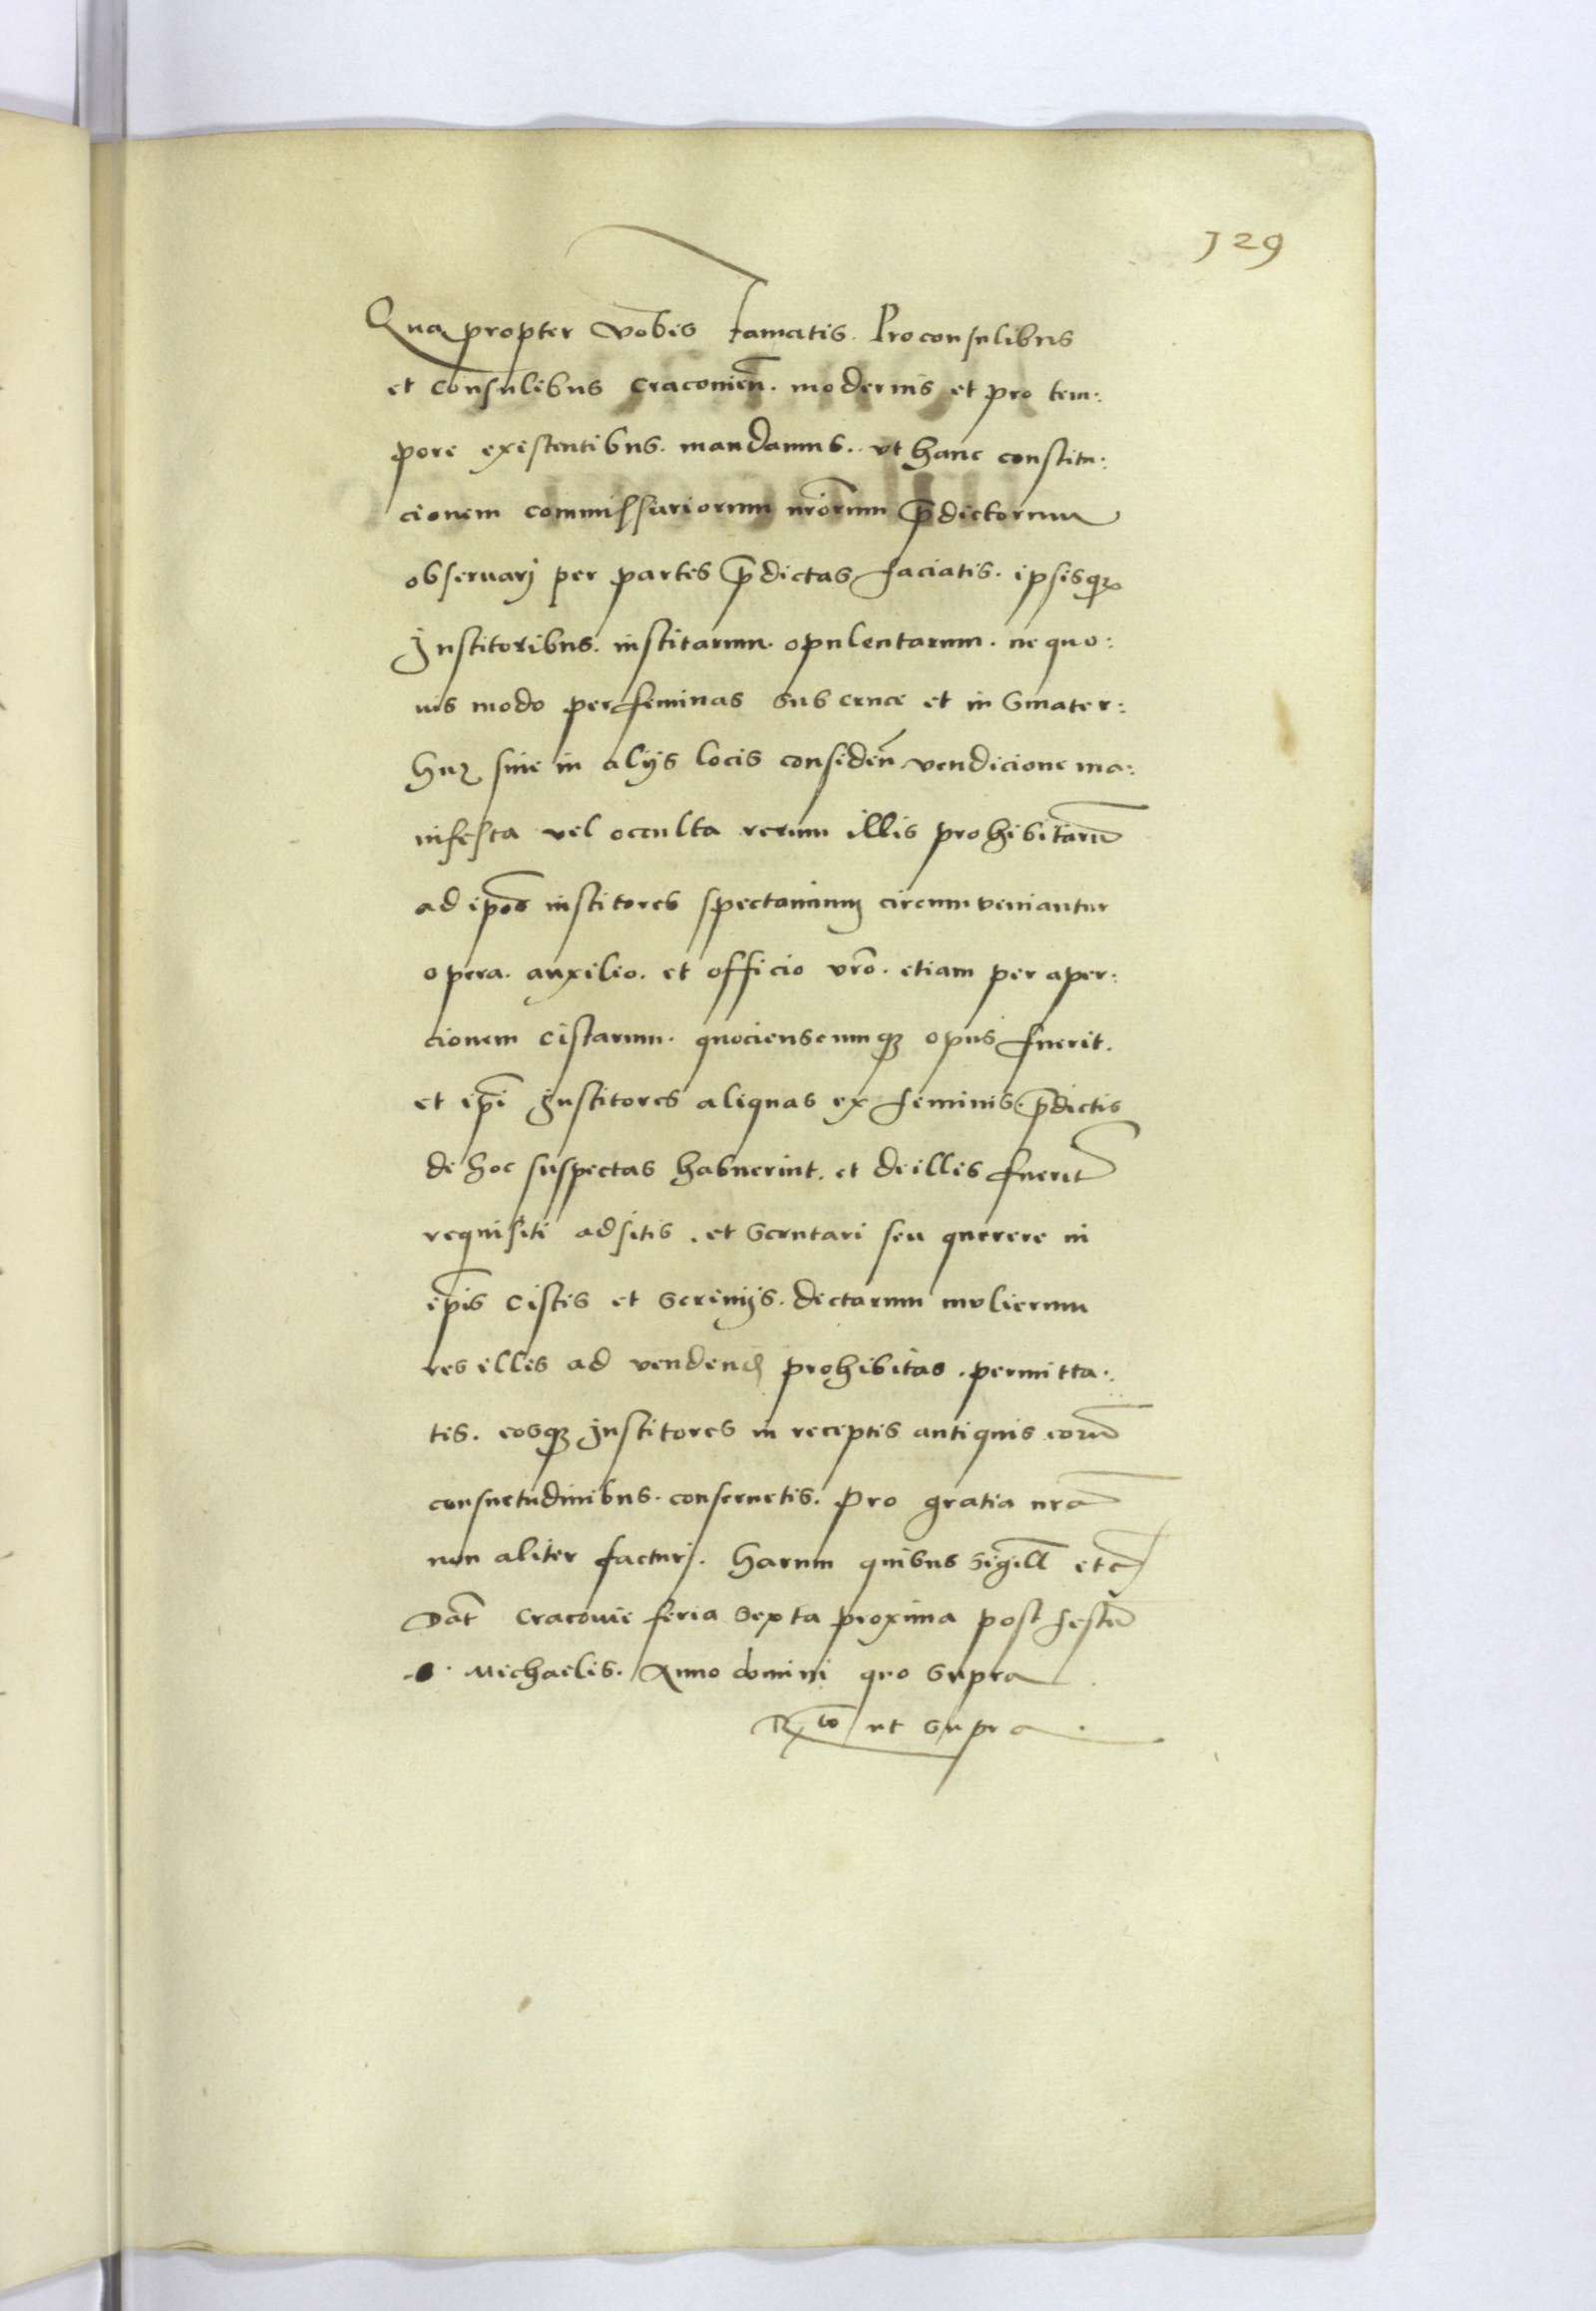 129
Quapropter vobis famatis Proconsulibus
et consulibus Cracovien̄. modernis et pro tem:
pore existentibus. mandamus. vt hanc constitu:
cionem commissariorum nr̄orum p̄dictorum
obseruarj per partes p̄dictas faciatis. ipsisqꝫ
Institoribus. institarum. opulentarum. ne quo:
uis modo per feminas sub cruce et in Smater:
huz siue in alijs locis consideñ vendicione ma:
nifesta vel occulta rerum illis prohibitarū
ad ip̄os institores spectancium circumveniantur
opera. auxilio. et officio vr̄o. etiam per aper:
cionem Cistarum. quocienscumqꝫ opus fuerit.
et ip̄i Institores aliquas ex feminis. p̄dictis
de hoc suspectas habuerint. et de illis fuerit̄
requisiti adsitis. et scrutari seu querere in
ip̄is cistis et scrinijs. dictarum mulierum
res illis ad vendend prohibitas. permitta:
tis. eosqꝫ Institores in receptis antiquis eorū
consuetudinibus. conseruetis. pro gratia nr̄a
non aliter facturj. Harum quibus sigill̄ etc̄
Dat̄ Cracovie feria sexta proxima post festū
s. Michaelis. Anno domini quo supra
R̄to ut supra.